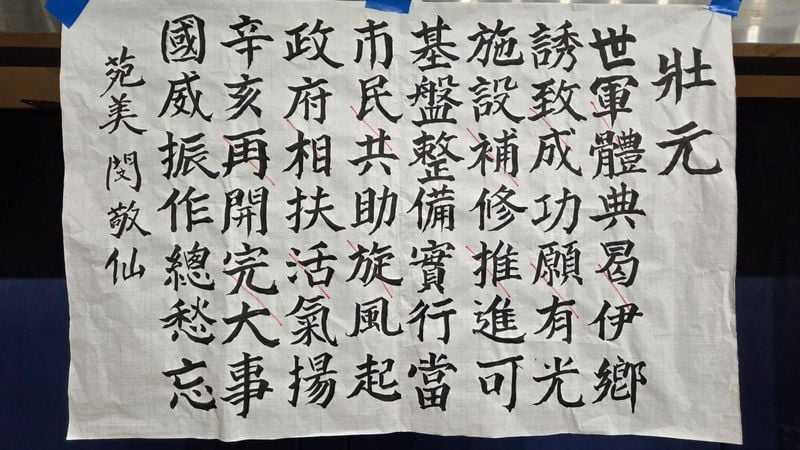 壯元
世軍體典曷伊鄉
誘致成功願有光
施設補修推進可
基盤整備實行當
市民共助旋風起
政府相扶活氣揚
辛亥再開完大事
國威振作總愁忘
苑美 閔敬仙